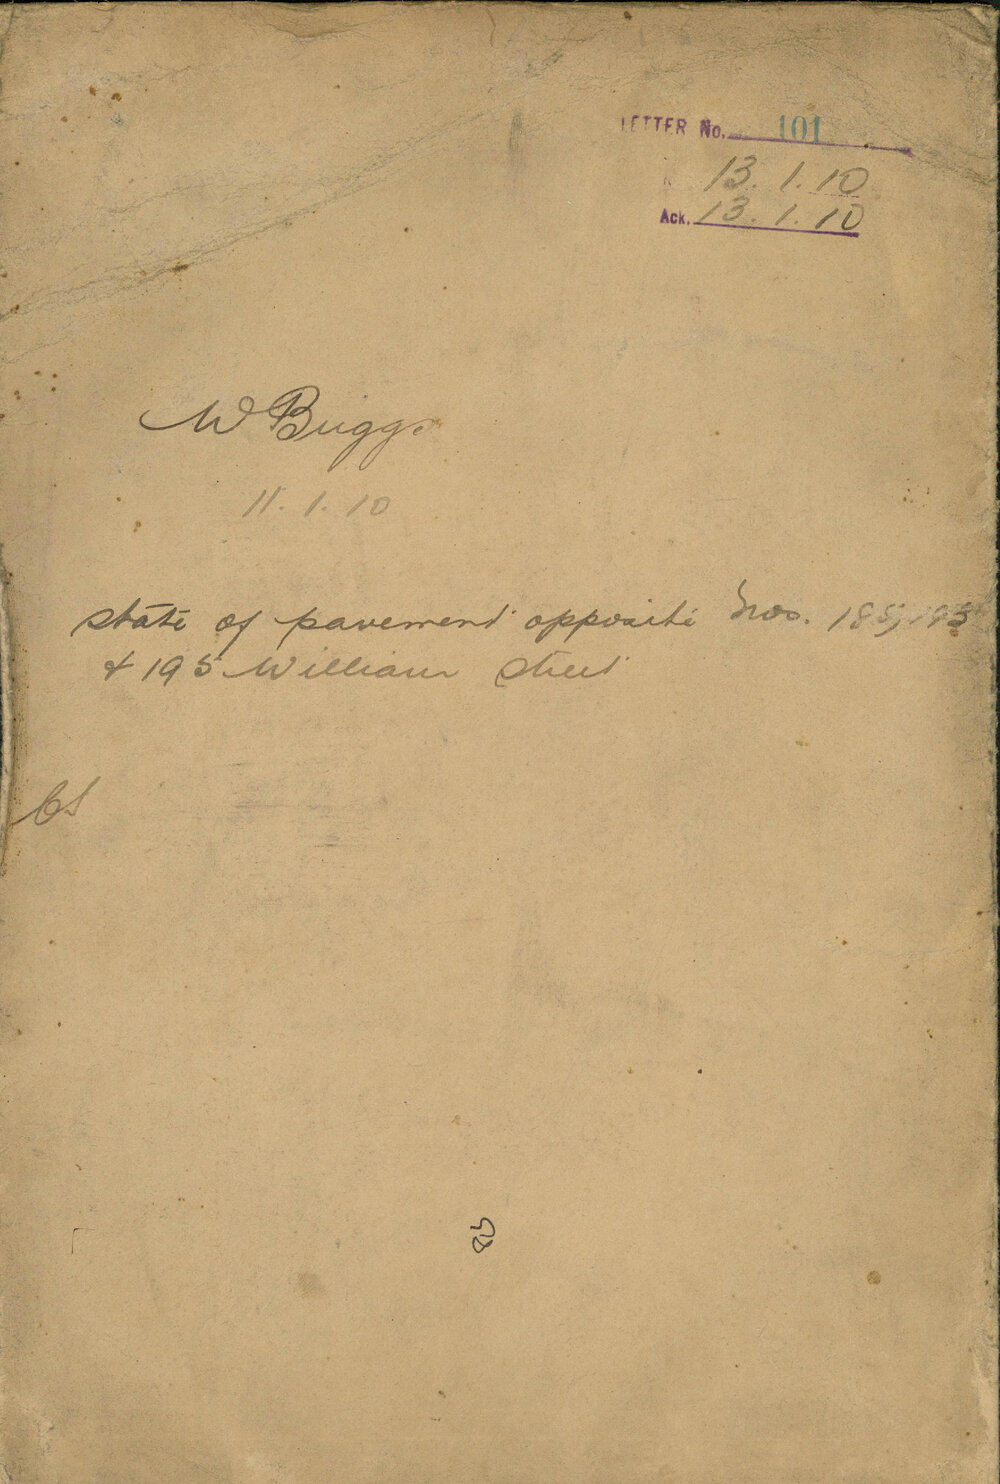 LETTER No. 101
13. 1. 10
Ack. 13. 1. 10
W Briggs
11. 1. 10
state of pavement opposite Nos. 185, 193
& 195 William Street
CS